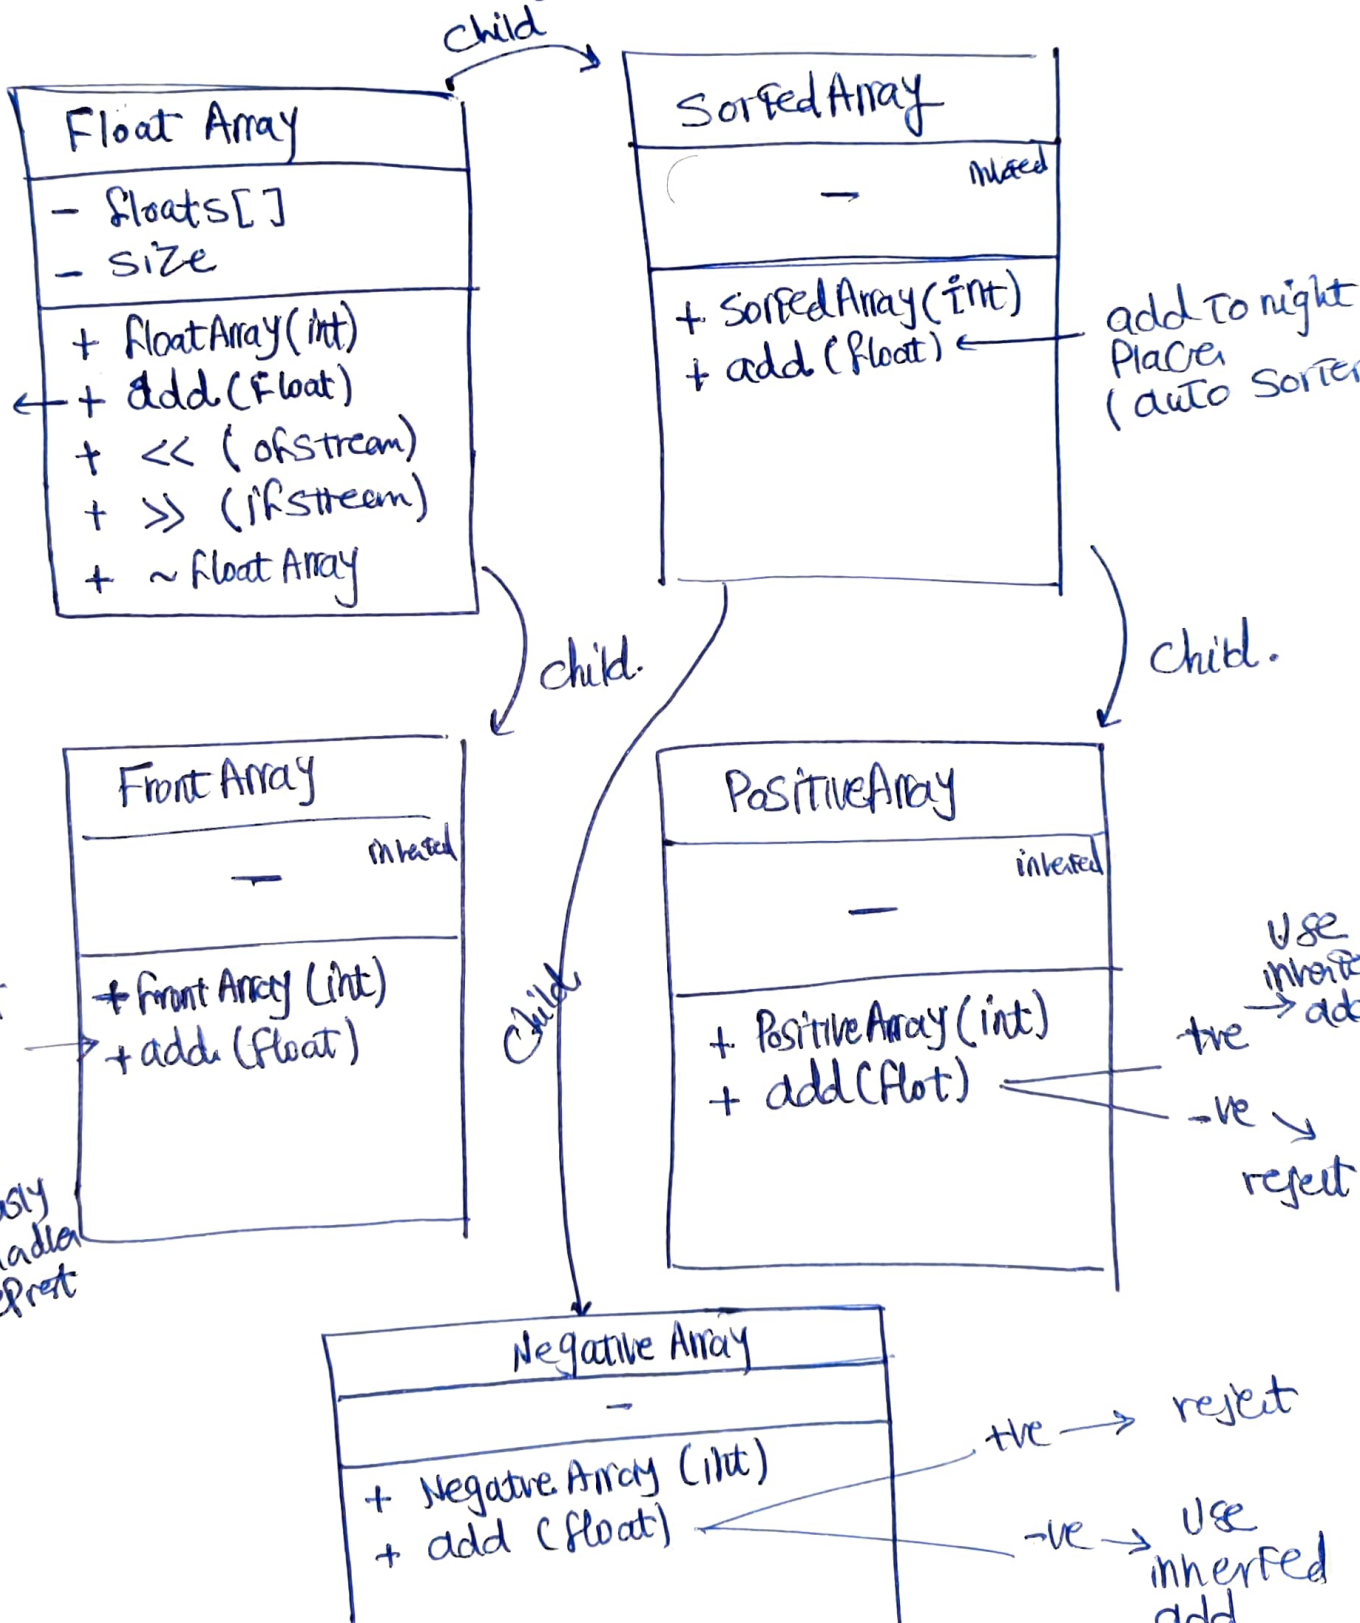 child
Float Array
- floats[]
- size
+ floatArray(int)
+ add(Float)
+ << (ofstream)
+ >> (ifstream)
+ ~floatArray
SortedArray
-
+ SortedArray(int)
+ add(float)
add To right
Place
(auto Sorter
child.
child.
child
FrontArray
-
+ FrontArray (int)
+ add (float)
PositiveArray
-
+ PositiveArray(int)
+ add(flot)
+ve
Use
-ve
reject
Negative Array
-
+ NegativeArray (int)
+ add (float)
+ve
reject
-ve
Use
inherted
add